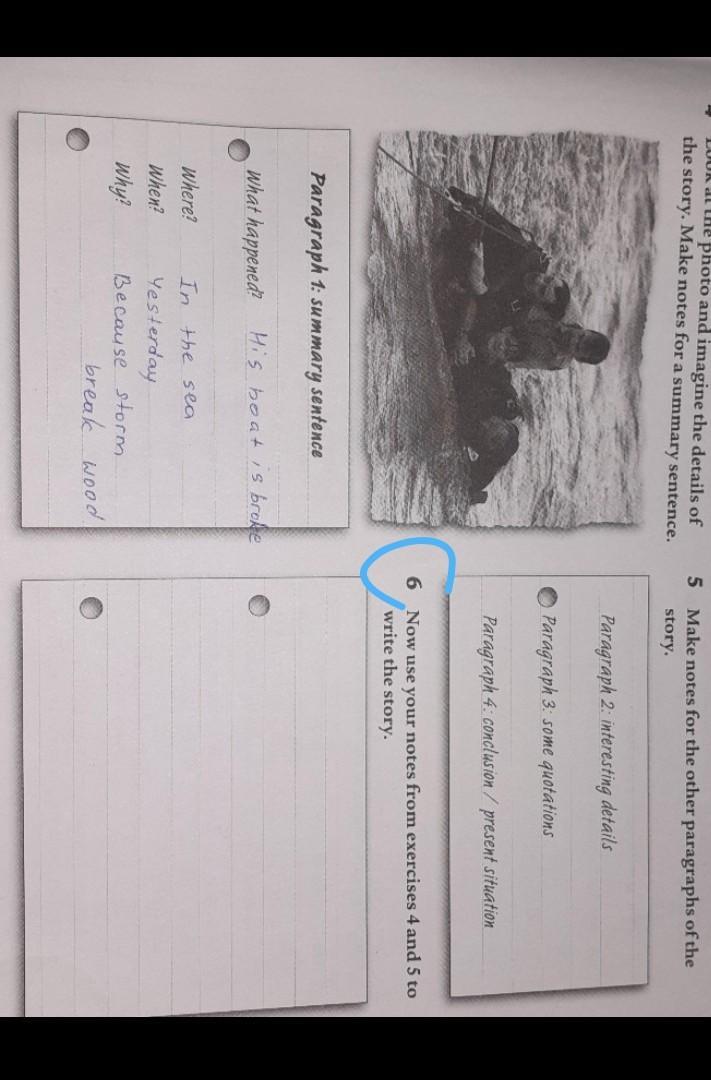 4 Look at the photo and imagine the details of
the story. Make notes for a summary sentence.
Paragraph 1: summary sentence
What happened? His boat is broke
Where? In the sea
When? Yesterday
Why? Because storm
break wood
5 Make notes for the other paragraphs of the
story.
Paragraph 2: interesting details
Paragraph 3: some quotations
Paragraph 4: conclusion / present situation
6 Now use your notes from exercises 4 and 5 to
write the story.